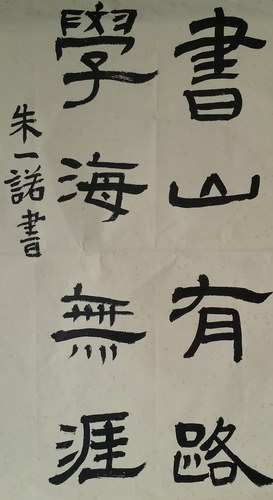 書山有路
學海無涯
朱一諾書